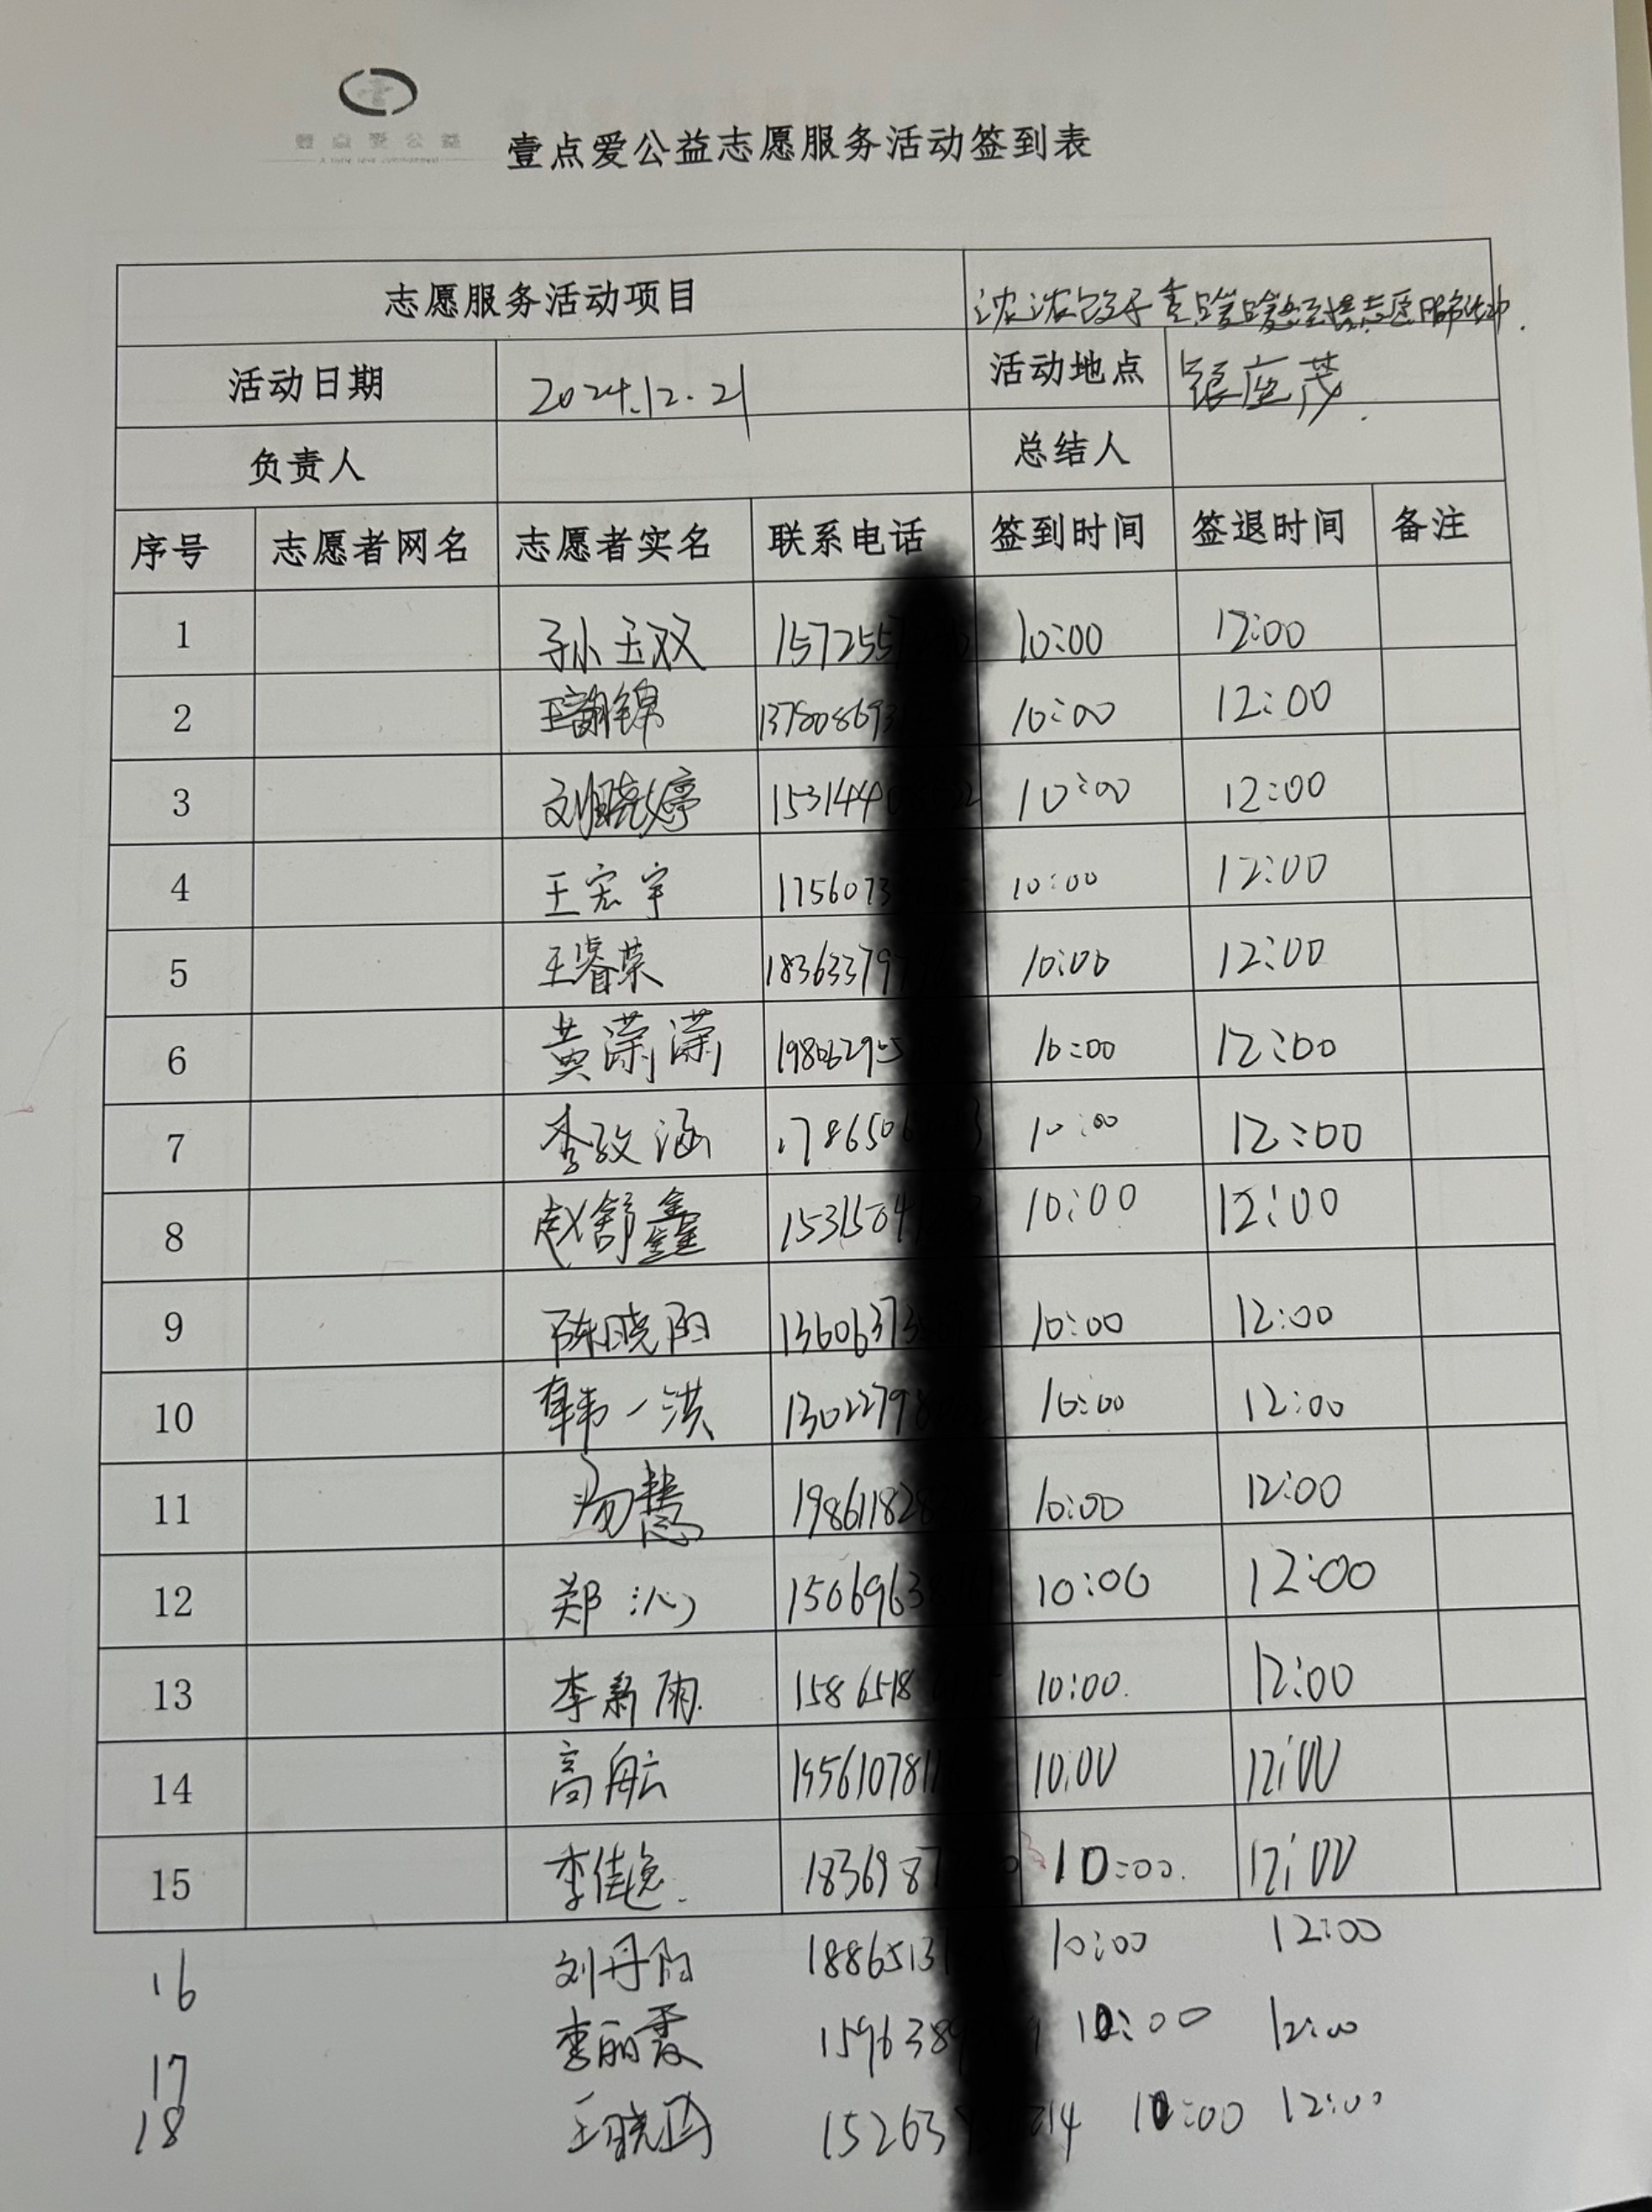 壹点爱公益
壹点爱公益志愿服务活动签到表
志愿服务活动项目 浓浓包子 志愿服务活动.
活动日期 2024.12.21 活动地点 银座茂.
负责人 总结人
序号 志愿者网名 志愿者实名 联系电话 签到时间 签退时间 备注
1 孙玉双 157255 10:00 12:00
2 王韶锦 137808693 10:00 12:00
3 刘晓婷 1531440 10:00 12:00
4 王宏宇 1756073 10:00 12:00
5 王睿荣 183633797 10:00 12:00
6 黄潇潇 198062905 10:00 12:00
7 李孜涵 1786506 10:00 12:00
8 赵舒鑫 1531504 10:00 12:00
9 陈晓雨 13606373 10:00 12:00
10 韩一洪 13022798 10:00 12:00
11 汤慧 198611828 10:00 12:00
12 郑沁 1506963 10:00 12:00
13 李新雨. 1586518 10:00. 12:00
14 高航 195610781 10:00 12:00
15 李佳逸. 1836987 10:00. 12:00
16 刘丹雨 1886513 10:00 12:00
17 李丽霞 1596389 10:00 12:00
18 王晓雨 152639 214 10:00 12:00